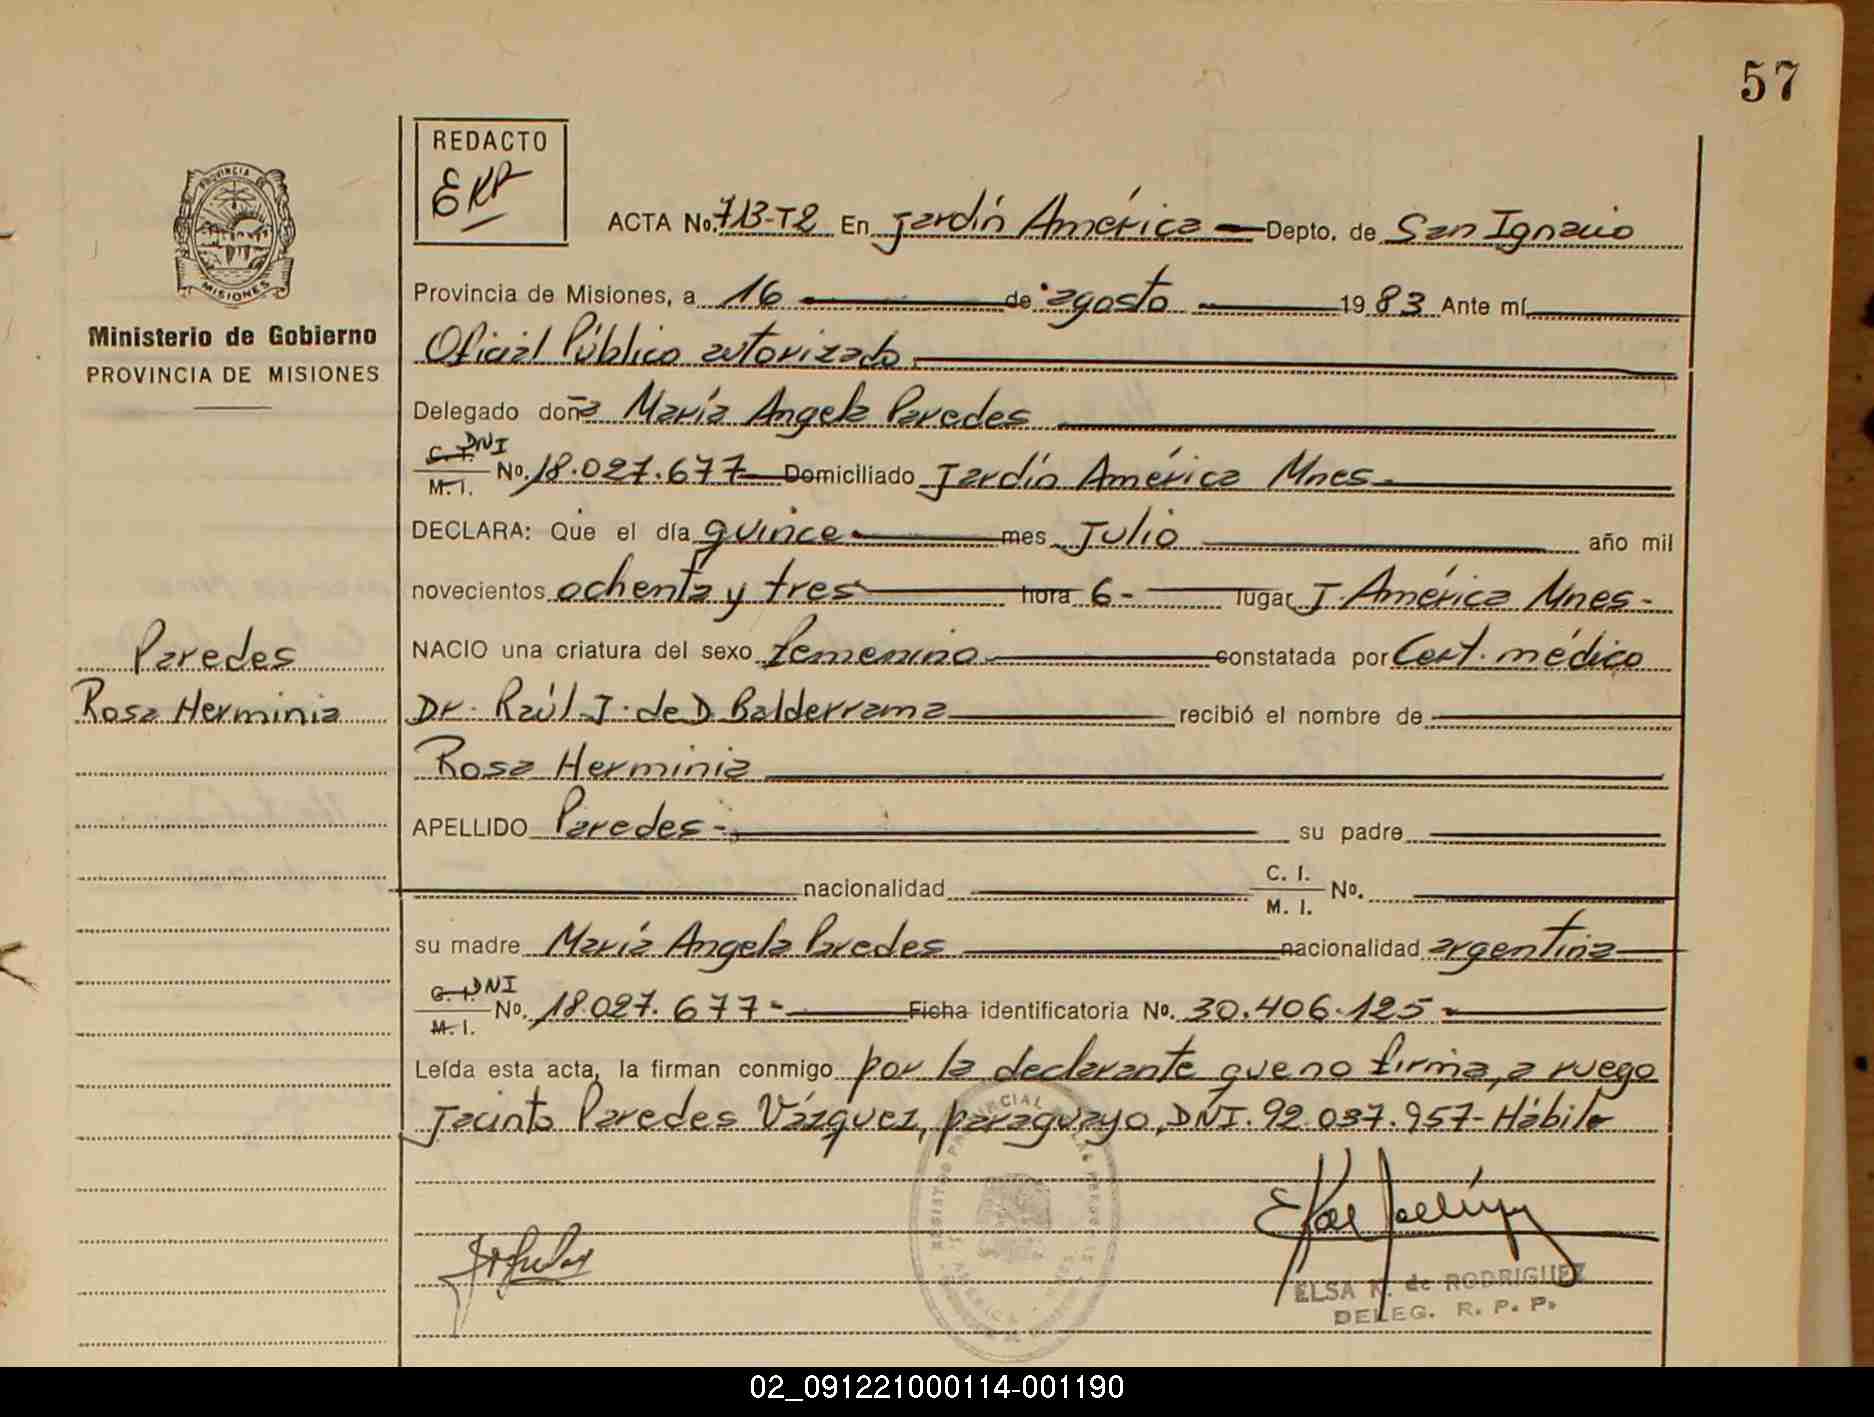 57
REDACTO
EKR
PROVINCIA DE
MISIONES
ACTA No. 713-T2 En Jardín América Depto. de San Ignacio
Provincia de Misiones, a 16 de agosto 1983 Ante mí
Ministerio de Gobierno
PROVINCIA DE MISIONES
Oficial Público autorizado.
Delegado doña María Angela Paredes
C. I. DNI
M. I. No. 18.027.677 Domiciliado Jardín América Mnes.
DECLARA: Que el día quince mes Julio año mil
novecientos ochenta y tres hora 6- lugar J. América Mnes-
Paredes
Rosa Herminia
NACIO una criatura del sexo femenino constatada por Cert. médico
Dr. Raúl J. de D. Balderrama recibió el nombre de
Rosa Herminia
APELLIDO Paredes- su padre
nacionalidad C. I. No.
M. I.
su madre María Angela Paredes nacionalidad argentina
C. I. DNI
M. I. No. 18.027.677- Ficha identificatoria No. 30.406.125-
Leída esta acta, la firman conmigo por la declarante que no firma, a ruego
Jacinto Paredes Vázquez, paraguayo, DNI. 92.037.957- Hábil
ELSA K. de RODRIGUEZ
DELEG. R. P. P.
02_091221000114-001190